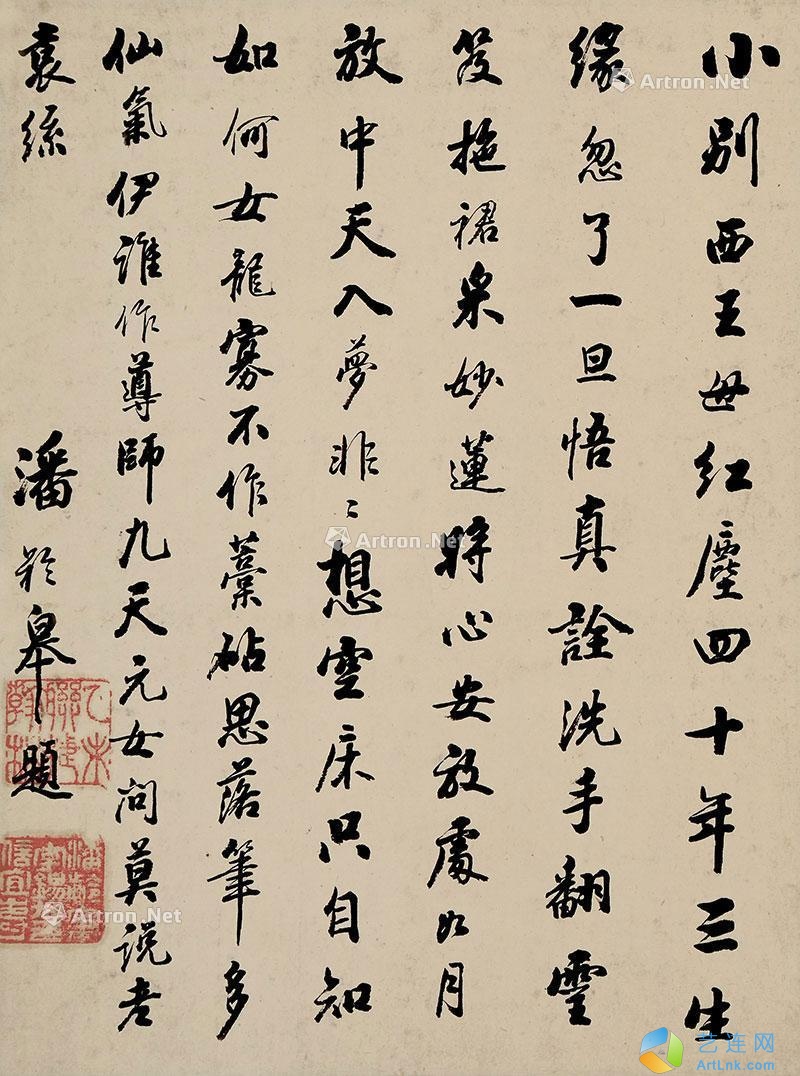 小别西王母红塵四十年三生
缘忽了一旦悟真詮洗手翻雲
笈拖裙采妙蓮将心安放處九月
放中天入夢非〻想空床只自知
如何女龍寡不作藁砧思落筆多
仙氣伊誰作導師九天元女問莫說老
袁絲
潘龄皋題
Artron.Net
Artron.Net
Artron.Net
艺连网
ArtLnk.com